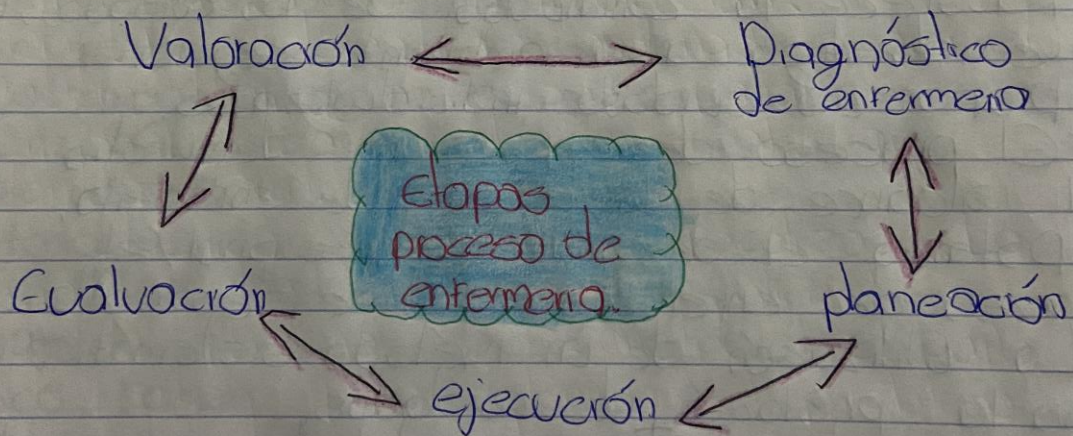 Valoración
Diagnóstico
de enfermeria
Etapas
proceso de
enfermeria.
Evaluación
planeación
ejecución